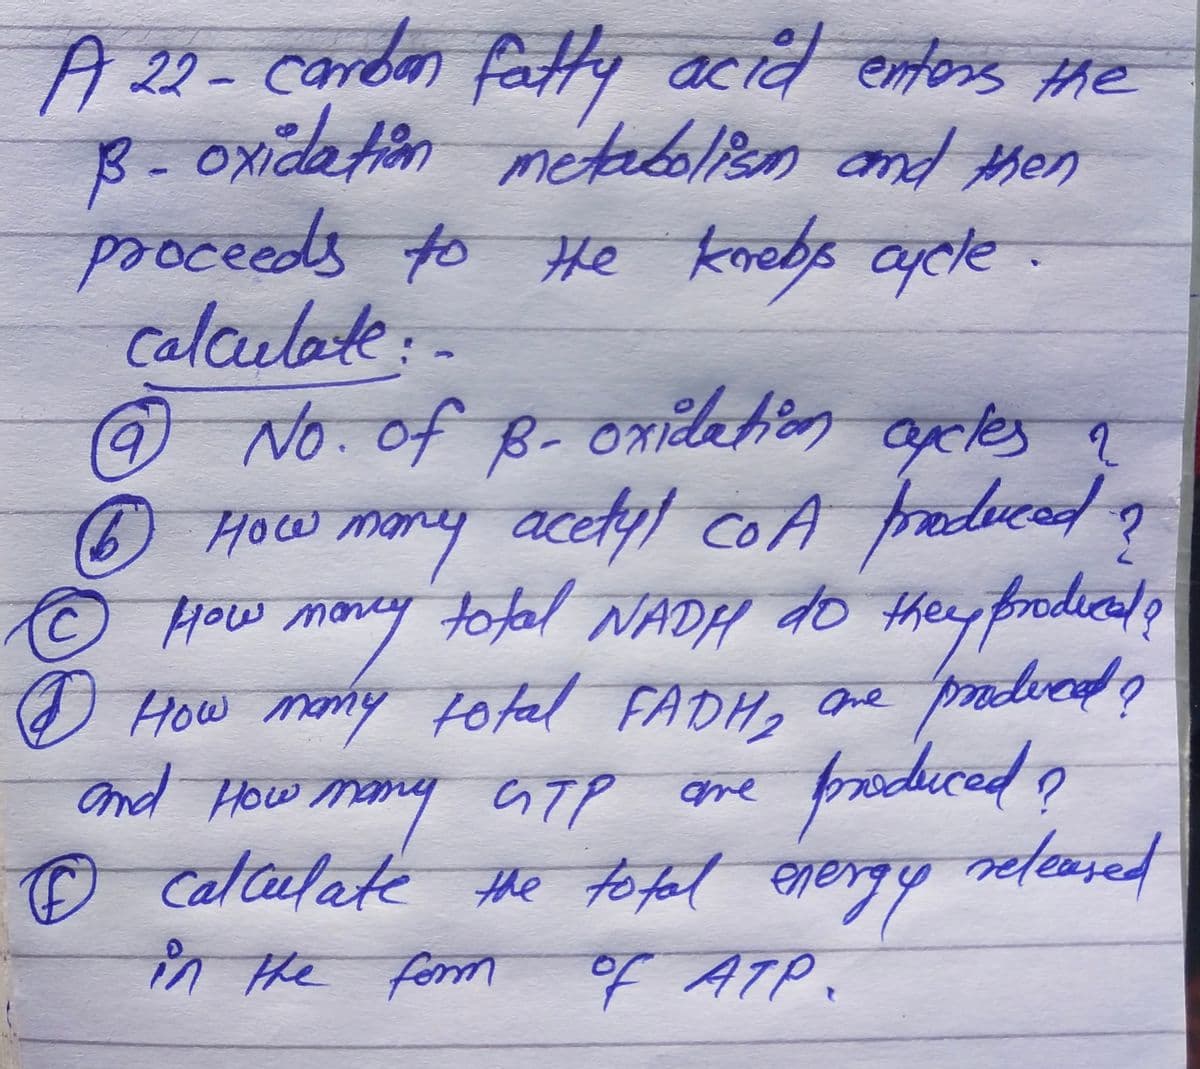 A 22 - carbon fatty acid enters the
β - oxidation metabolism and then
proceeds to the krebs cycle .
calculate : -
(a) No. of β - oxidation cycles ?
(b) How many acetyl CoA produced ?
(c) How many total NADH do they produced ?
(d) How many total FADH₂ are produced ?
and How many GTP are produced ?
(f) calculate the total energy released
in the form of ATP .